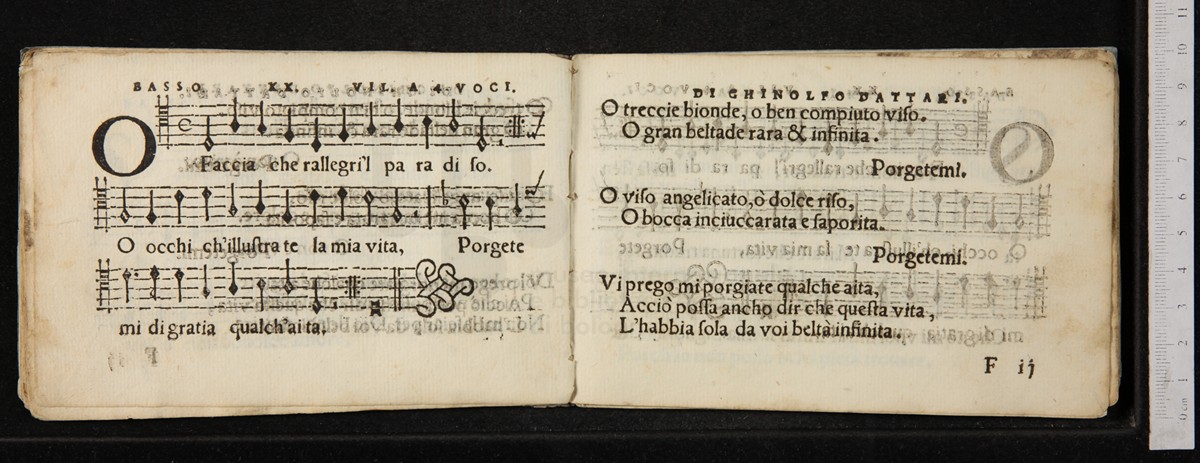 BASSO XX. VIL. A 4. VOCI.
O Faccia che rallegri'l pa ra di so.
O occhi ch'illustra te la mia vita, Porgete
mi di gratia qualch'ai ta.
DI GHINOLFO DATTARI.
O treccie bionde, o ben compiuto viso.
O gran beltade rara & infinita.
Porgetemi.
O viso angelicato, ò dolce riso,
O bocca inciuccarata e saporita.
Porgetemi.
Vi prego mi porgiate qualche aita,
Acciò possa ancho dir che questa vita,
L'habbia sola da voi beltà infinita.
F ij
0 cm 1 2 3 4 5 6 7 8 9 10 11